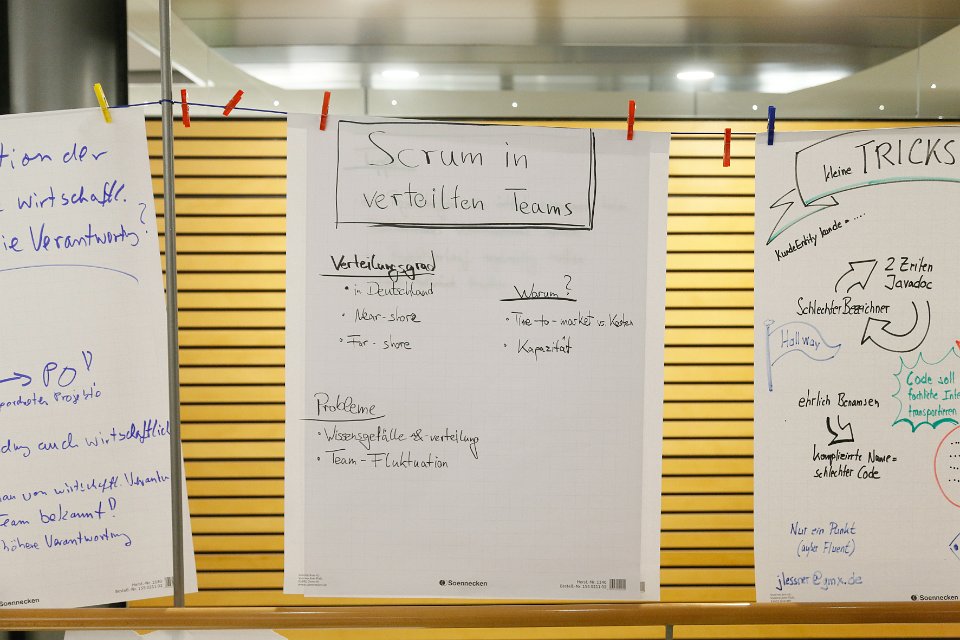 tion der
wirtschaftl.
ie Verantwortg?
→ PO!
Projekts
dung auch wirtschaftlich
von wirtschaftl. Verantw
Team bekannt?
höhere Verantwortung
Soennecken
Scrum in
verteilten Teams
Verteilungsgrad
• in Deutschland
• Near-shore
• Far-shore
Warum?
• Time-to-market vs Kosten
• Kapazität
Probleme
• Wissensgefälle & -verteilung
• Team-Fluktuation
Soennecken
kleine TRICKS
KundeEntity kunde = ....
2 Zeilen
Javadoc
Schlechter Bezeichner
Hallway
Code soll
fachliche Inte
transportieren
ehrlich Benamsen
komplizierte Name =
schlechter Code
Nur ein Punkt
(außer Fluent)
jlessner@gmx.de
Soennecken